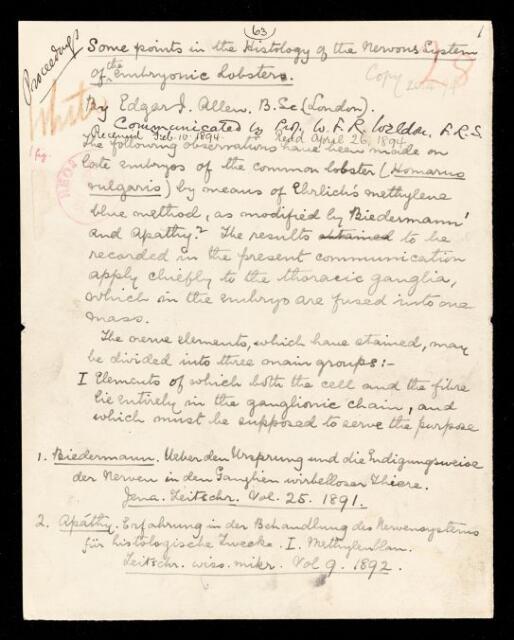 (63)
1
Proceedings
Some points in the Histology of the Nervous System
of the embryonic Lobster.
Copy
28
White
By Edgar J. Allen. B.Sc (London).
Communicated by Prof. W. F. R. Weldon, F.R.S.
Received Feb. 10. 1894 Read April 26, 1894
1 fig.
The following observations have been made on
late embryos of the common lobster (Homarus
vulgaris) by means of Ehrlich's methylene
blue method, as modified by Biedermann¹
and Apáthy.² The results obtained to be
recorded in the present communication
apply chiefly to the thoracic ganglia,
which in the embryo are fused into one
mass.
The nerve elements, which have stained, may
be divided into three main groups:-
I Elements of which both the cell and the fibre
lie entirely in the ganglionic chain, and
which must be supposed to serve the purpose
1. Biedermann. Ueber den Ursprung und die Endigungsweise
der Nerven in den Ganglien wirbelloser Thiere.
Jena. Zeitschr. Vol. 25. 1891.
2. Apáthy. Erfahrung in der Behandlung des Nervensystems
für histologische Zwecke. I. Methylenblau.
Zeitschr. wiss. mikr. Vol 9. 1892.